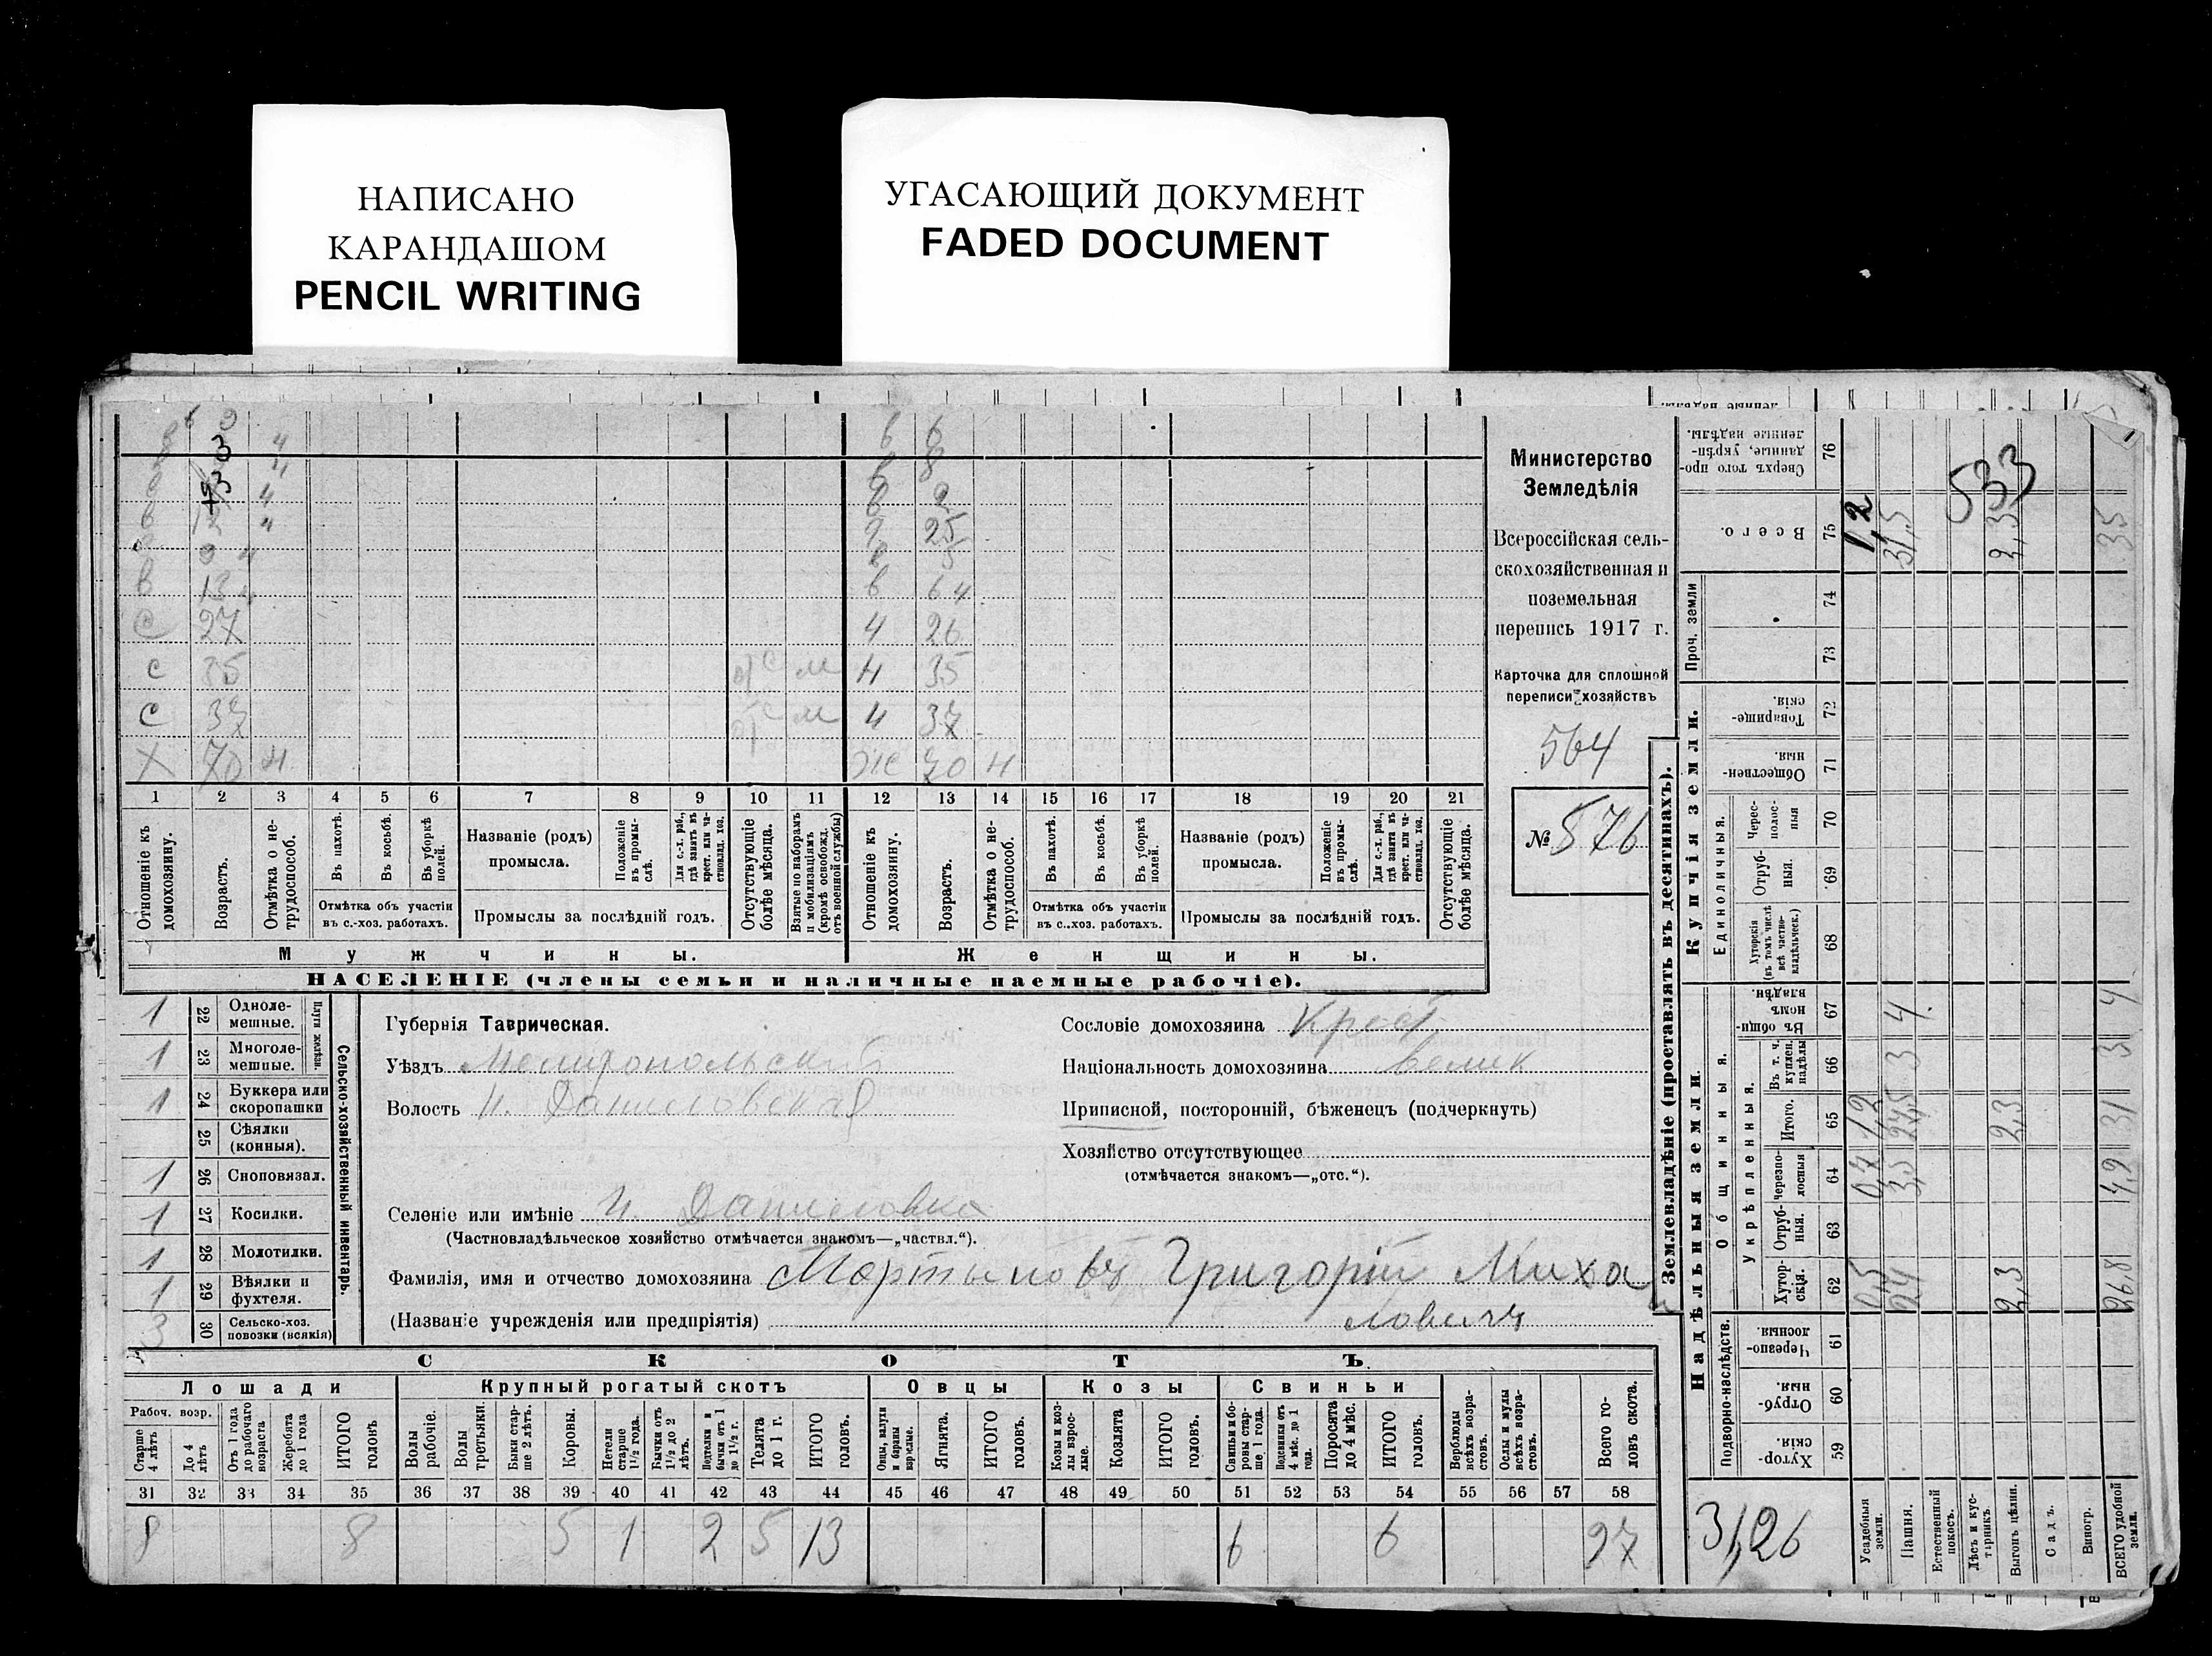 НАПИСАНО
КАРАНДАШОМ
PENCIL WRITING
УГАСАЮЩИЙ ДОКУМЕНТ
FADED DOCUMENT
в 13 ч в 6 ч
С 27 ч 26
с 35 ч 35
с 37 ч 37
Х 70 н Ж 70 н
1 2 3 4 5 6 7 8 9 10 11 12 13 14 15 16 17 18 19 20 21
Отношеніе къ домохозяину.
Возрастъ.
Отмѣтка о нетрудоспособ.
Въ пахотѣ.
Въ косьбѣ.
Въ уборкѣ полей.
Отмѣтка объ участіи
въ с.-хоз. работахъ.
Названіе (родъ)
промысла.
Положеніе въ промыслѣ.
Для с.-х. раб., гдѣ занятъ въ крест. или частновлад. хоз.
Промыслы за послѣдній годъ.
Отсутствующіе болѣе мѣсяца.
Взятые по наборамъ и мобилизаціямъ (кромѣ освобожд. отъ военной службы)
Отношеніе къ домохозяину.
Возрастъ.
Отмѣтка о нетрудоспособ.
Въ пахотѣ.
Въ косьбѣ.
Въ уборкѣ полей.
Отмѣтка объ участіи
въ с.-хоз. работахъ.
Названіе (родъ)
промысла.
Положеніе въ промыслѣ.
Для с.-х. раб., гдѣ занятъ въ крест. или частновлад. хоз.
Промыслы за послѣдній годъ.
Отсутствующіе болѣе мѣсяца.
Мужчины. Женщины.
НАСЕЛЕНІЕ (члены семьи и наличные наемные рабочіе).
Министерство
Земледѣлія
Всероссійская сель-
скохозяйственная и
поземельная
перепись 1917 г.
Карточка для сплошной
переписи хозяйствъ
564
№ 576
1 22 Одноле-
мешные.
1 23 Многоле-
мешные.
Плуги желѣзн.
1 24 Буккера или
скоропашки
25 Сѣялки
(конныя).
1 26 Сноповязал.
1 27 Косилки.
1 28 Молотилки.
1 29 Вѣялки и
фухтеля.
3 30 Сельско-хоз.
повозки (всякія)
Сельско-хозяйственный инвентарь.
Губернія Таврическая.
Уѣздъ Мелитопольский
Волость Н. Даниловская
Селеніе или имѣніе Н. Даниловка
(Частновладѣльческое хозяйство отмѣчается знакомъ—„частвл.“).
Фамилія, имя и отчество домохозяина Мартыновъ Григорій Миха
(Названіе учрежденія или предпріятія) ловичъ
Сословіе домохозяина Крест
Національность домохозяина велик
Приписной, посторонній, бѣженецъ (подчеркнуть)
Хозяйство отсутствующее
(отмѣчается знакомъ—„отс.“).
СКОТЪ
Лошади Крупный рогатый скотъ Овцы Козы Свиньи
Рабоч. возр.
Старше 4 лѣтъ
До 4 лѣтъ
Отъ 1 года до рабочаго возраста
Жеребята до 1 года
ИТОГО головъ
Волы рабочіе.
Волы третьяки.
Быки старше 2 лѣтъ.
Коровы.
Нетели старше 1½ года.
Бычки отъ 1½ до 2 лѣтъ.
Подтелки и бычки отъ 1 до 1½ г.
Телята до 1 г.
ИТОГО головъ.
Овцы, валухи и бараны взрослые.
Ягнята.
ИТОГО головъ.
Козы и козлы взрослые.
Козлята
ИТОГО головъ.
Свиньи и боровы старше 1 года.
Подсвинки отъ 4 мѣс. до 1 года.
Поросята до 4 мѣс.
ИТОГО головъ.
Верблюды всѣхъ возрастовъ.
Ослы и мулы всѣхъ возрастовъ.
Всего головъ скота.
31 32 33 34 35 36 37 38 39 40 41 42 43 44 45 46 47 48 49 50 51 52 53 54 55 56 57 58
8 8 5 1 2 5 13 6 6 27
Землевладѣніе (проставлять въ десятинахъ).
Надѣльныя земли. Купчія земли. Проч. земли
Подворно-наслѣдств.
Общинныя.
Укрѣпленныя.
Единоличныя.
59 Хуторскія
60 Отрубныя
61 Черезполосныя
62 Хуторскія.
63 Отрубныя.
64 Черезполосныя
65 Итого.
66 Въ т. ч. куплен. надѣлы
67 Въ общинномъ владѣн.
68 Хуторскія (въ томъ числѣ всѣ частновладѣльческ.)
69 Отрубныя.
70 Черезполосныя
71 Общественныя
72 Товарищескія.
73
74
75 Всего.
76 Сверхъ того проданные, укрѣпленные надѣлы.
Усадебныя земли. 0,5 0,7 1,2 1,2
Пашня. 24 3,5 27,5 3 4 31,5
Естественный покосъ.
Лѣсъ и кустарникъ.
Выгонъ цѣлин. 2,3 2,3 2,3
Садъ.
Виногр.
ВСЕГО удобной земли. 26,8 4,2 31 3 4 35
533
31,26